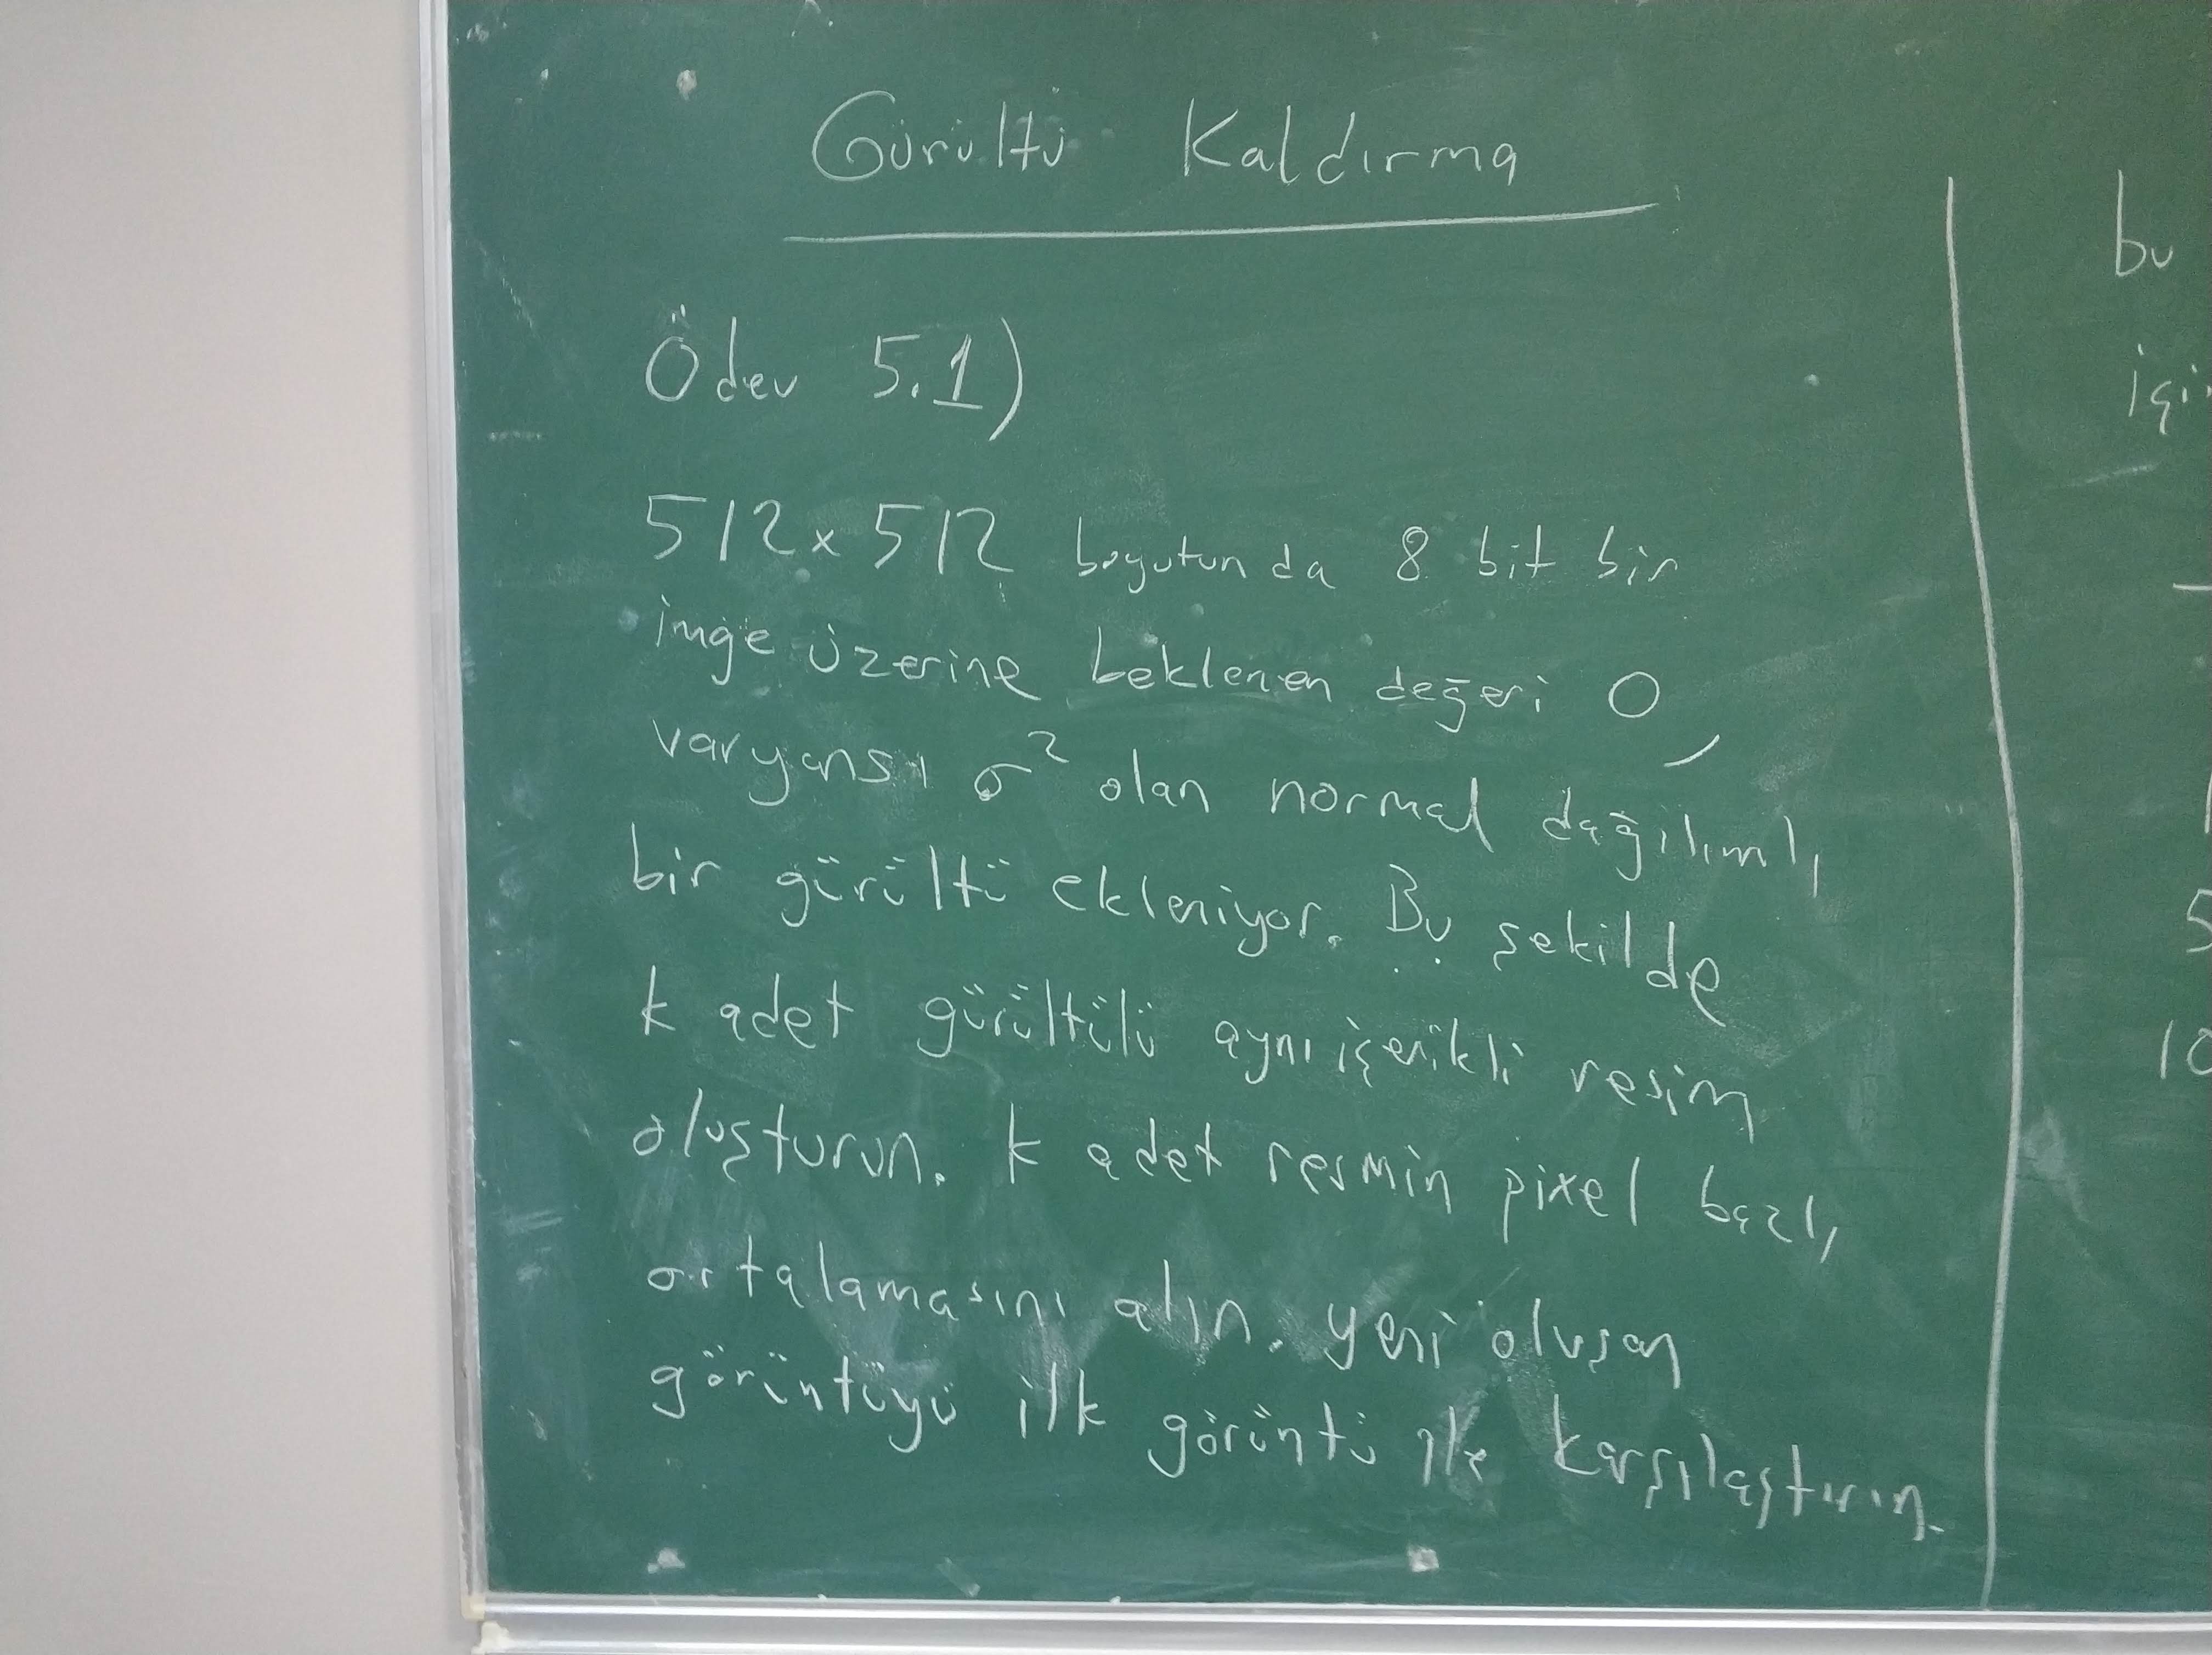 Gürültü Kaldırma
Ödev 5.1)
512 x 512 boyutunda 8 bit bir
imge üzerine beklenen değeri 0,
varyansı σ² olan normal dağılımlı
bir gürültü ekleniyor. Bu şekilde
k adet gürültülü aynı içerikli resim
oluşturun. k adet resmin pixel bazlı
ortalamasını alın. yeni oluşan
görüntüyü ilk görüntü ile karşılaştırın.
bu